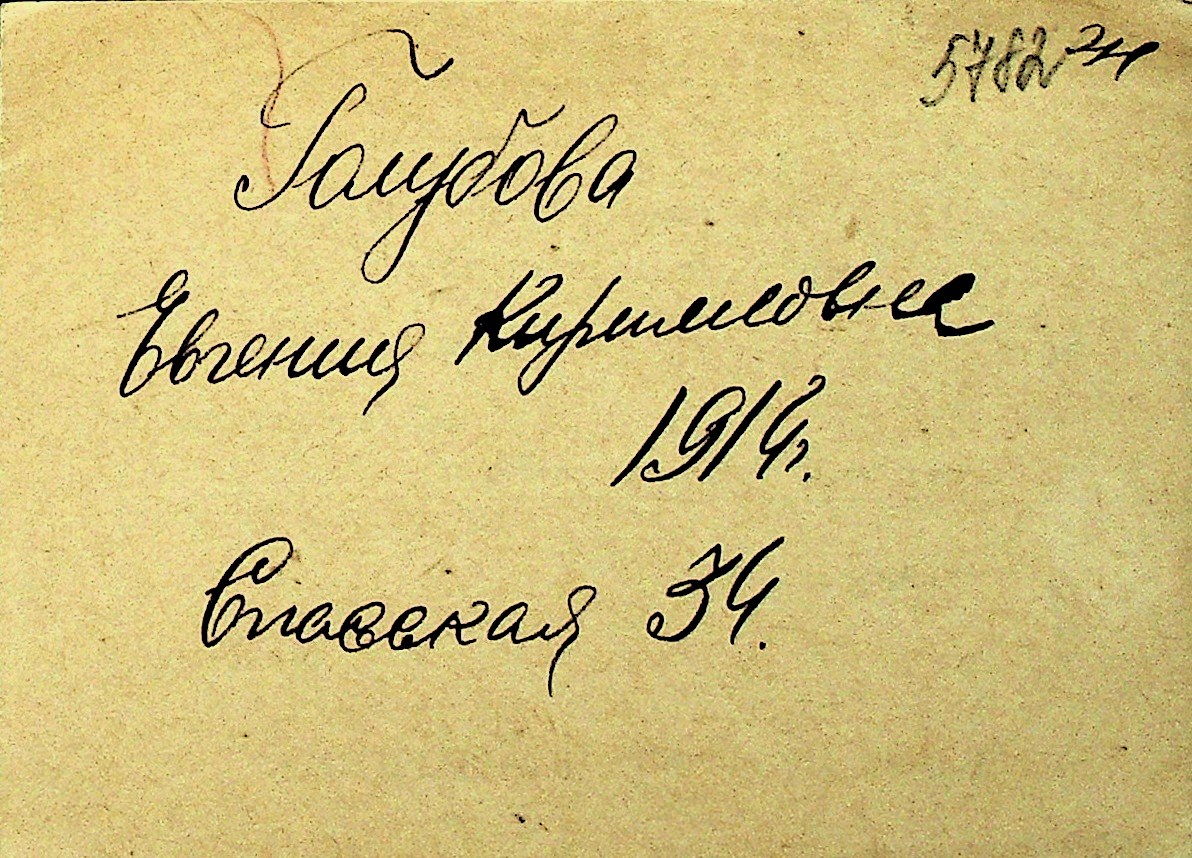 5782
Голубова
Евгения Кирилловна
1914г.
Спасская 34.